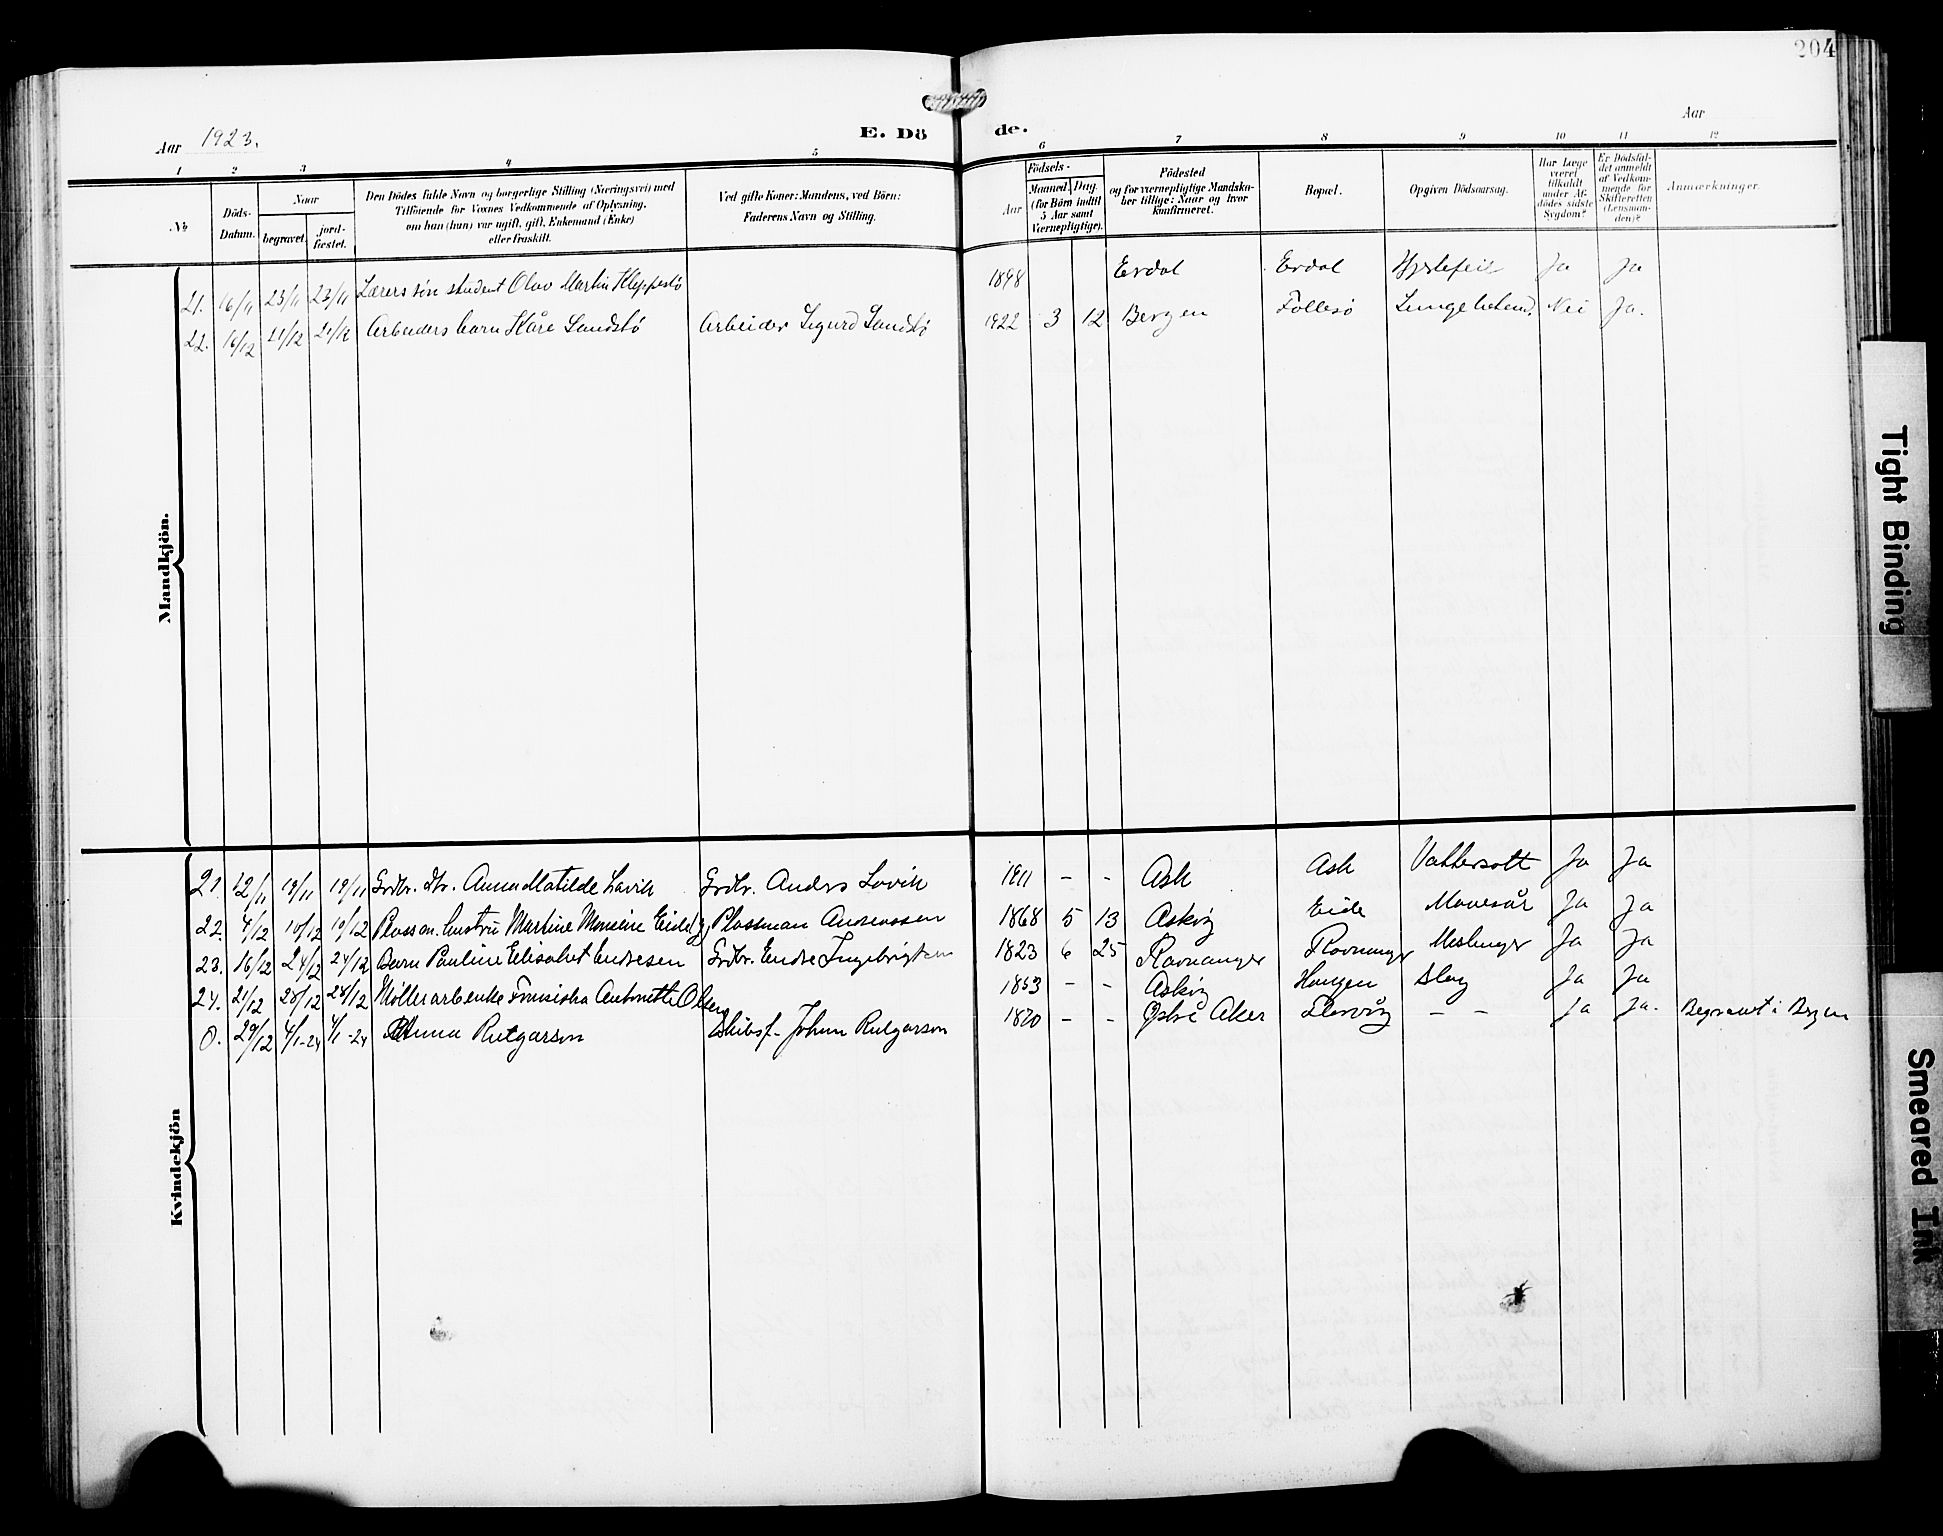 204
Aar 1923.
E. Dö
de.
Aar
1 2 3 4 5 6 7 8 9 10 11 12
No
Döds-
Datum.
Naar
begravet.
jord-
fæstet.
Den Dödes fulde Navn og borgerlige Stilling (Næringsvei) med
Tilföiende for Voxnes Vedkommende af Oplysning,
om han (hun) var ugift, gift, Enkemand (Enke)
eller fraskilt.
Ved gifte Koner: Mandens, ved Börn:
Faderens Navn og Stilling.
Födsels-
Aar
Maaned. Dag.
(for Börn indtil
5 Aar samt
Værnepligtige).
Födested
og for værnepligtige Mandska-
ber tillige: Naar og hvor
konfirmeret.
Bopæl.
Opgiven Dödsaarsag.
Har Læge
været
tilkaldt
under Af-
dödes sidste
Sygdom?
Er Dödsfal-
det anmeldt
af Vedkom-
mende for
Skifteretten
(Lensman-
den)?
Anmærkninger.
Mandkjön.
21. 16/11 23/11 23/11 Lærers søn student Olav Martin Kleppestø 1898 Erdal Erdal Hjertefeil Ja Ja
22. 16/12 21/12 21/12 Arbeiders barn Kåre Sandstø Arbeider Sigurd Sandstø 1922 3 12 Bergen Follesø Nei Ja.
Kvindekjön
21. 12/11 19/11 19/11 Grdbr. dtr. Anna Matilde Lavik Grdbr. Anders Lavik 1911 - - Ask Ask Vattersott Ja Ja
22. 4/12 10/12 10/12 Plassm. hustru Martine Monsine Eide Plassman Andreassen 1868 5 13 Askøy Eide Mavesår Ja Ja
23. 16/12 24/12 24/12 Barn Pauline Elisabet Endresen Grdbr. Endre Ingebrigtsen 1823 6 25 Ravnanger Ravnanger Meslinger Ja Ja
24. 21/12 28/12 28/12 Møllerarb enke Fransiska Antonette Olsen 1853 - - Askøy Haugen Slag Ja Ja
0. 29/12 4/1-24 4/1-24 Anna Rutgarson Skibsf. Johan Rutgarson 1820 - - Østre Aker Florvåg - - Ja Ja. Begravet i Bergen
Tight Binding
Smeared Ink